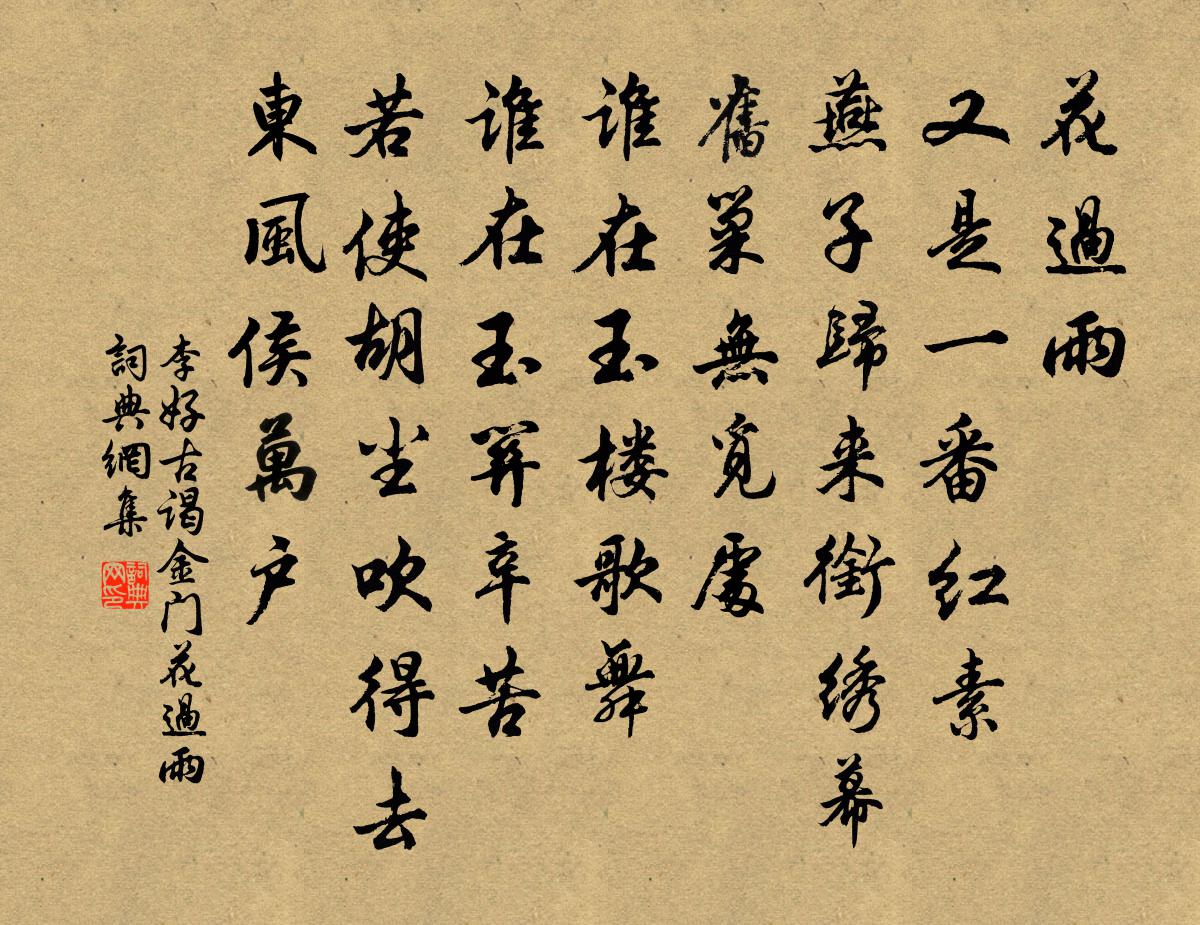 花過雨
又是一番红素
燕子歸来銜綉幕
舊巢無覓處
谁在玉楼歌舞
谁在玉關辛苦
若使胡尘吹得去
東風侯萬户
李好古谒金门花過雨
詞典網集
詞典网印